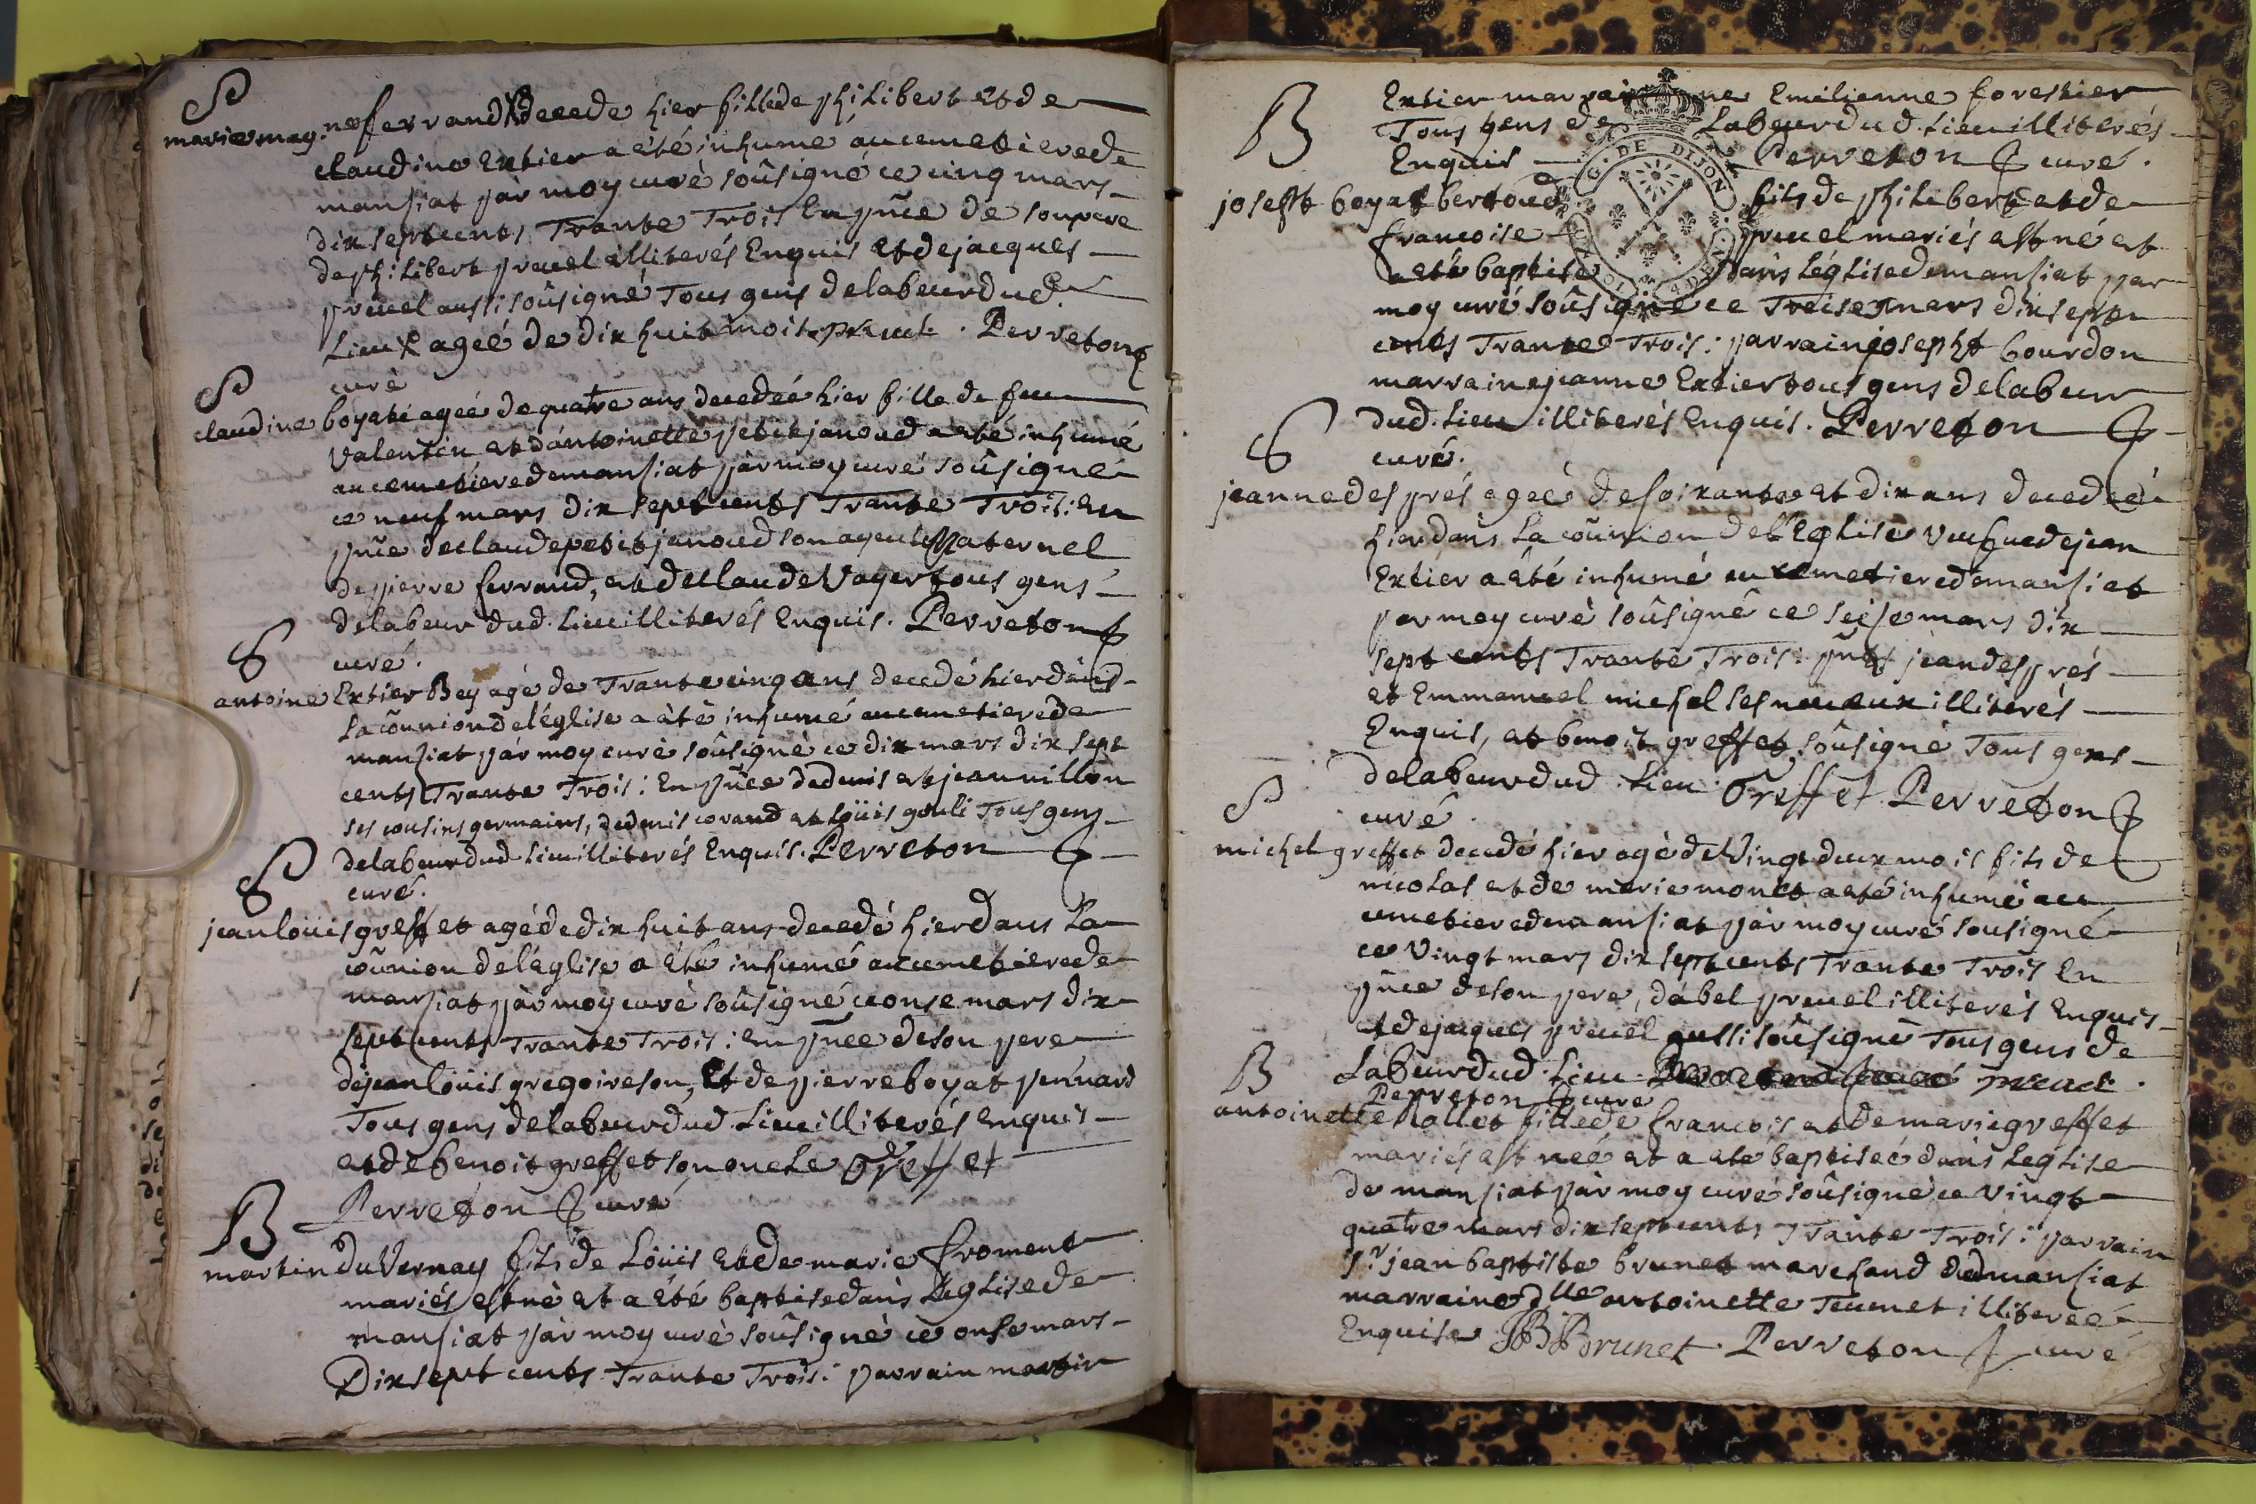 S
marie mag.ne ferrand decede hier fille de philibert et de
claudine Extier a été inhumé au cemetiere de
mansiat pàr moy curé soûsigné ce cinq mars
dix sept cents Trante Trois En pñce de son pere
de philibert preuel illiterés Enquis et de jacques
preuel aussi soûsigné Tous gens de labeur dud.
Lieu & ageé de dix huit mois preuel. Perreton
curé
S
claudine boyat ageé de quatre ans decedeé hier fille de feu
Valentin et d'antoinette petitjanoud a eté inhumé
au cemetiere de mansiat pàr moy curé soûsigné
ce neuf mars dix sept cents Trante Trois : En
pñce de claude petit janoud son ayeul Maternel
de pierre ferrand, et de claude Vayer tous gens
de labeur dud. Lieu illiterés Enquis. Perreton
curé.
S
antoine Extier Bey agé de Trante cinq ans decedé hier dàns
La coûnion de l'église a àté inhumé au cemetiere de
mansiat pàr moy curé soûsigné ce dix mars dix sept
cents Trante Trois : En pñce de denis et jean
ses cousins germains, de denis corand et Loüis gouli Tous gens
de labeur dud. Lieu illiterés Enquis. Perreton
curé.
S
jean loüis greffet agé de dix huit ans decedé hier dans La
coûnion de l'Eglise a été inhumé au cemetiere de
mansiat pàr moy curé soûsigné ce onse mars dix
sept cents Trante Trois : En pñce de son pere
de jean Loüis gregoire son, Et de pierre boyat pennard
Tous gens de labeur dud. Lieu illiterés Enquis
et de benoit greffet son oncle Greffet
Perreton curé
B
martin du Vernay fils de Loüis Et de marie froment
mariés est né et a été baptisé dàns L'eglise de
mansiat pàr moy curé soûsigné ce onse mars
Dix sept cents Trante Trois : parrain martin
Extier marraine Emilienne forestier
B
Tous gens de Labeur dud. Lieu illiterés
Enquis Perreton curé.
josepht boyat bertoud fils de philibert et de
francoise preuel mariés est né et
a eté baptisé dans L'église de mansiat par
moy curé soûsigné ce Treise mars dix sept
cents Trante Trois : parrain josepht bourdon
marraine jeanne Extier tous gens de labeur
dud. Lieu illiterés Enquis. Perreton
curé.
S
jeanne des prés ageé de soixante et dix ans decedeé
hier dàns La coûnion de l'Eglise Veufue de jean
Extier a eté inhumé au cemetiere de mansiat
par moy curé soûsigné ce seise mars dix
sept cents Trante Trois : pñts jean des prés
et Emmanuel michel ses neueux illiterés
Enquis, et benoit greffet soûsigné Tous gens
de labeur dud. Lieu. Greffet. Perreton
curé.
S
michel greffet decedé hier agé de Vingt deux mois fils de
nicolas et de marie monet a eté inhumé au
cemetiere de mansiat pàr moy curé sousigné
ce Vingt mars dix sept cents Trante Trois En
pñce de son pere, d'abel preuel illiterés Enquis
et de jacques preuel aussi soûsigné Tous gens de
Labeur dud. Lieu. preuel.
Perreton curé
B
antoinette Mallet fille de francois et de marie greffet
mariés est neé et a eté baptiseé dàns L'eglise
de mansiat pàr moy curé soûsigné ce Vingt
quatre mars dix sept cents Trante Trois : parrain
s.r jean baptiste brunet marchand dud. mansiat
marraine dlle antoinette Teuenet illitereé
Enquise. JB Brunet. Perreton curé
G. DE DIJON